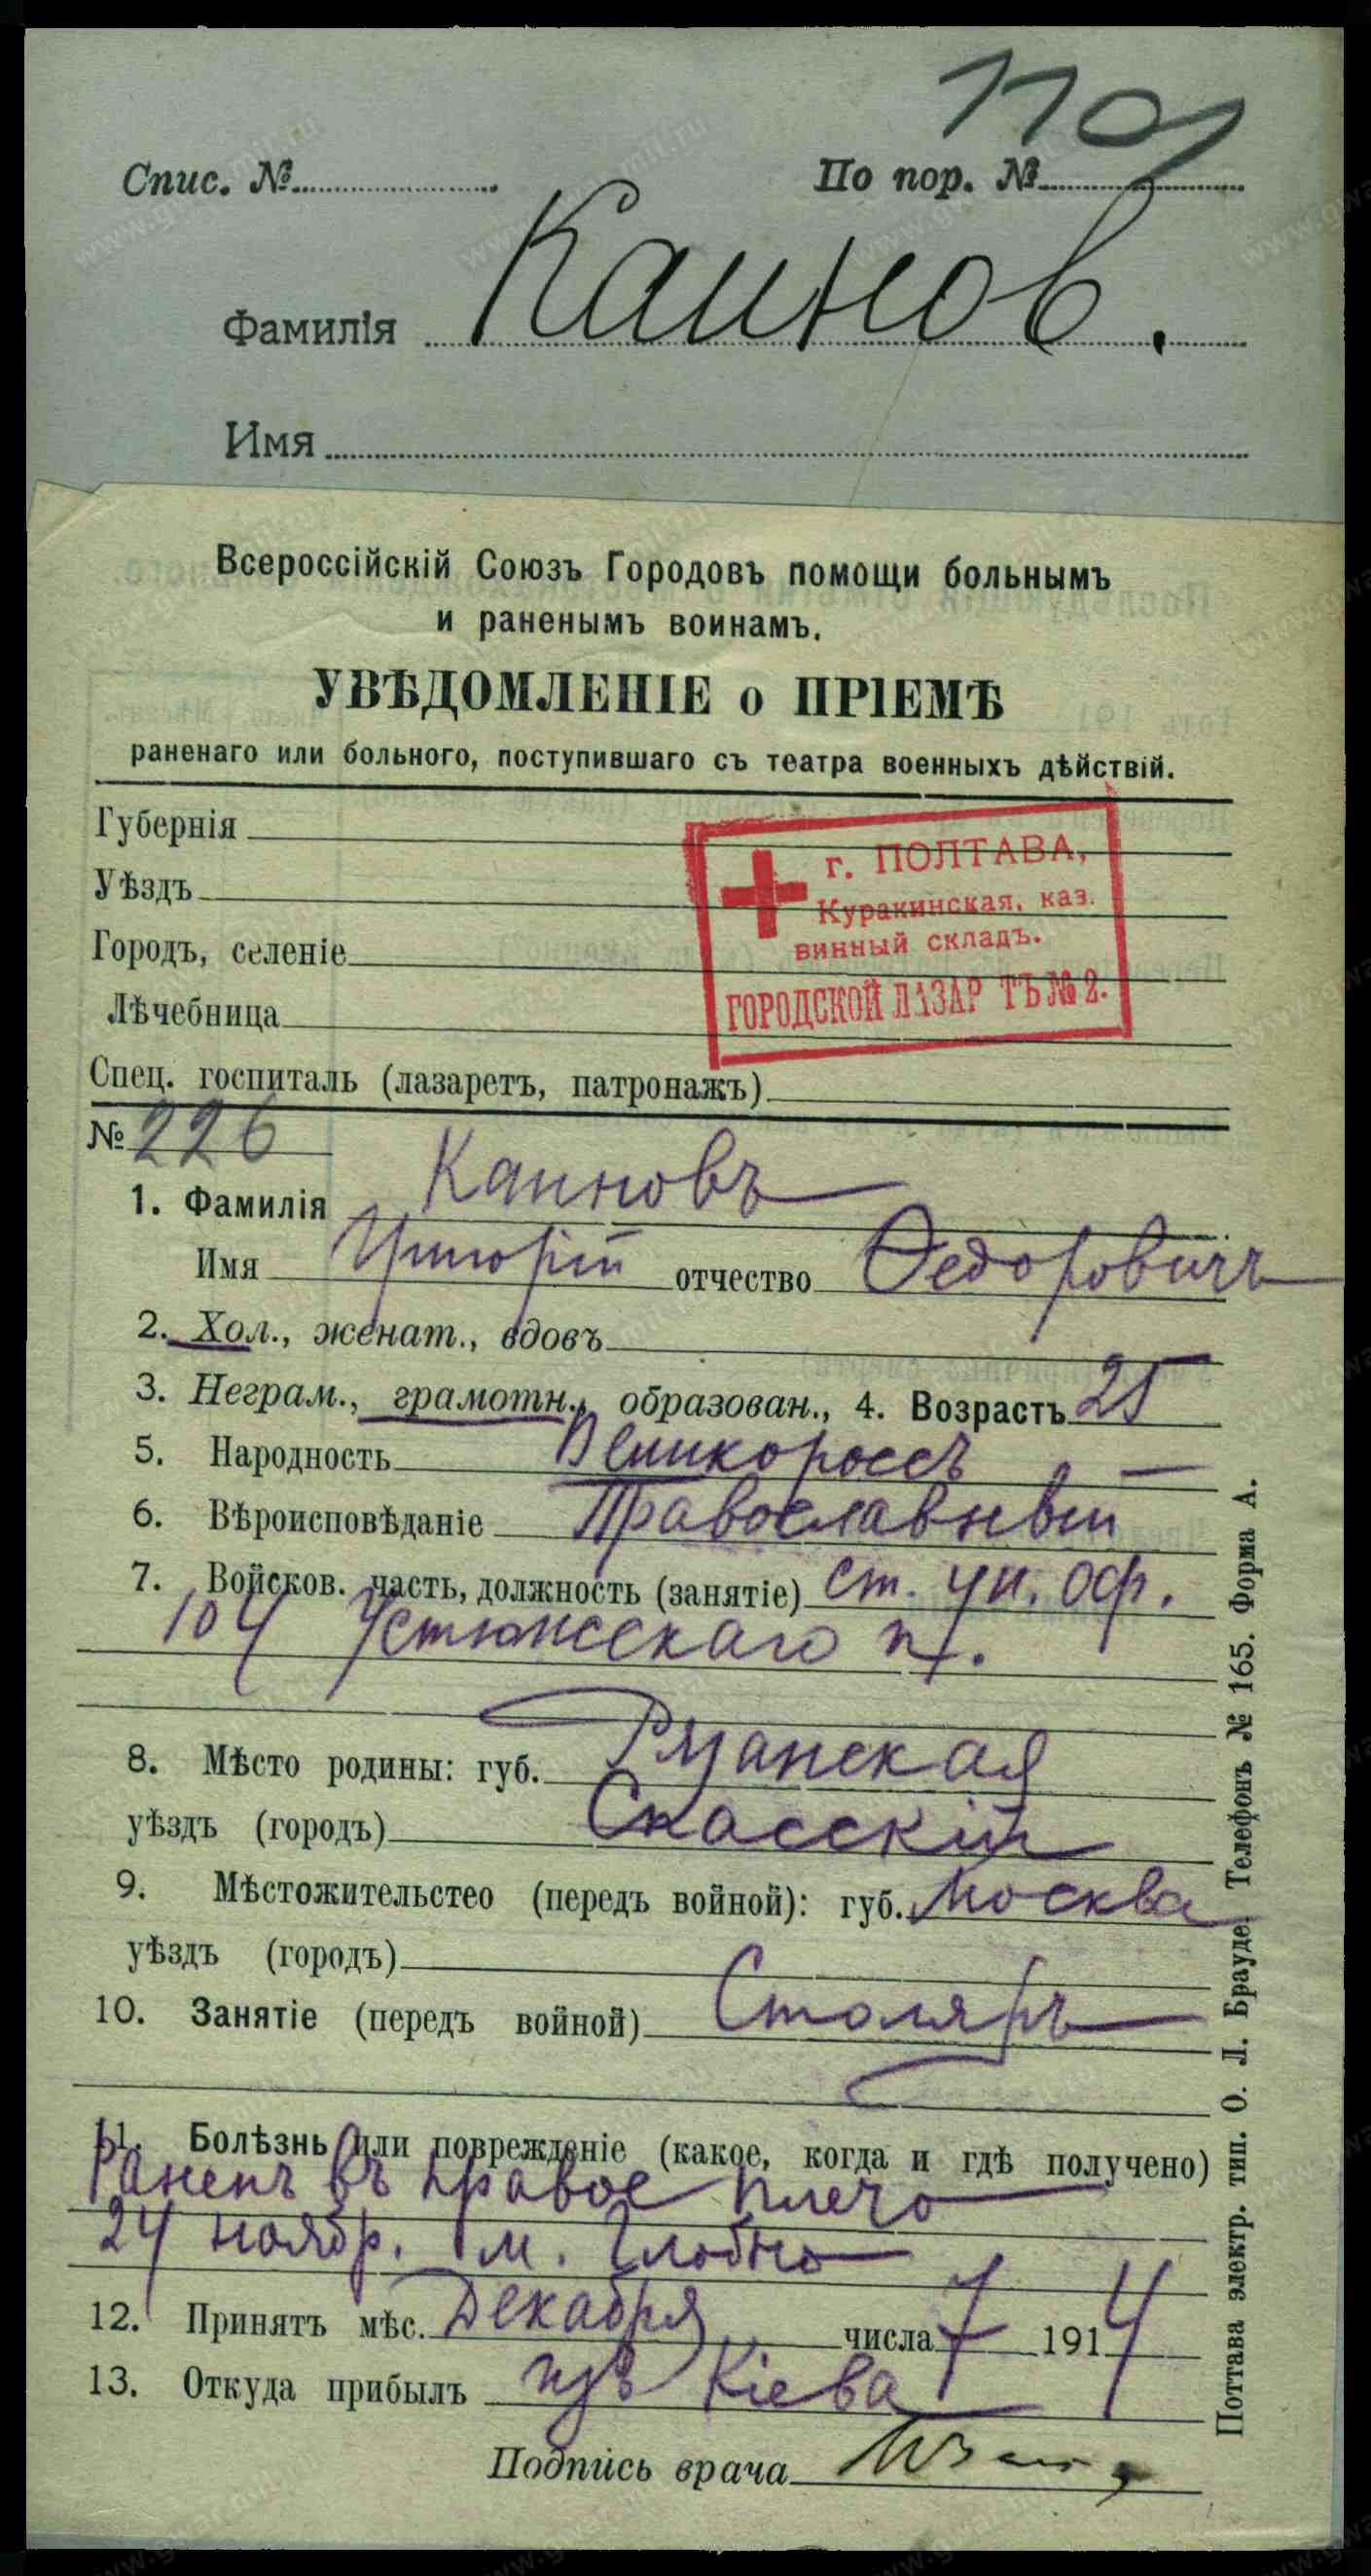 1701
Спис. №
По пор. №
Фамилія Каинов.
Имя
Всероссійскій Союзъ Городовъ помощи больнымъ
и раненымъ воинамъ.
УВѢДОМЛЕНІЕ о ПРІЕМѢ
раненаго или больного, поступившаго съ театра военныхъ дѣйствій.
Губернія
Уѣздъ
Городъ, селеніе
Лѣчебница
г. ПОЛТАВА,
Куракинская, каз.
винный складъ.
ГОРОДСКОЙ ЛАЗАР ТЪ № 2.
Спец. госпиталь (лазаретъ, патронажъ)
№ 226
1. Фамилія Каиновъ
Имя Григорій отчество Ѳедоровичъ
2. Хол., женат., вдовъ
3. Неграм., грамотн., образован., 4. Возрастъ 25
5. Народность Великороссъ
6. Вѣроисповѣданіе Православный
7. Войсков. часть, должность (занятіе) ст. ун. оф.
104 Устюжскаго п.
8. Мѣсто родины: губ. Рязанская
уѣздъ (городъ) Спасскій
9. Мѣстожительстео (передъ войной): губ. Москва
уѣздъ (городъ)
10. Занятіе (передъ войной) Столяръ
11. Болѣзнь или поврежденіе (какое, когда и гдѣ получено)
Раненъ въ правое плечо
24 ноябр. м. Гловно
12. Принятъ мѣс. Декабря числа 7 1914
13. Откуда прибылъ изъ Кіева
Подпись врача
Поттава электр. тип. О. Л. Брауде. Телефонъ № 165. Форма А.